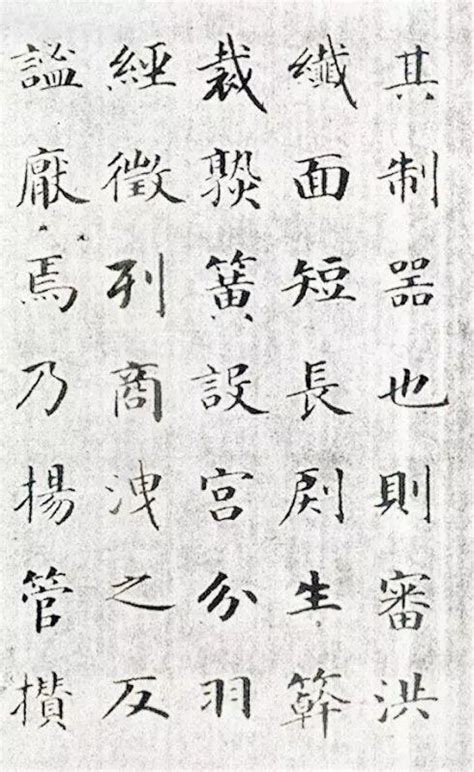 其制器也則審洪
纖面短長生簳
裁熟簧設宮分羽
經徵列商洩之反
謐厭焉乃揚管攢